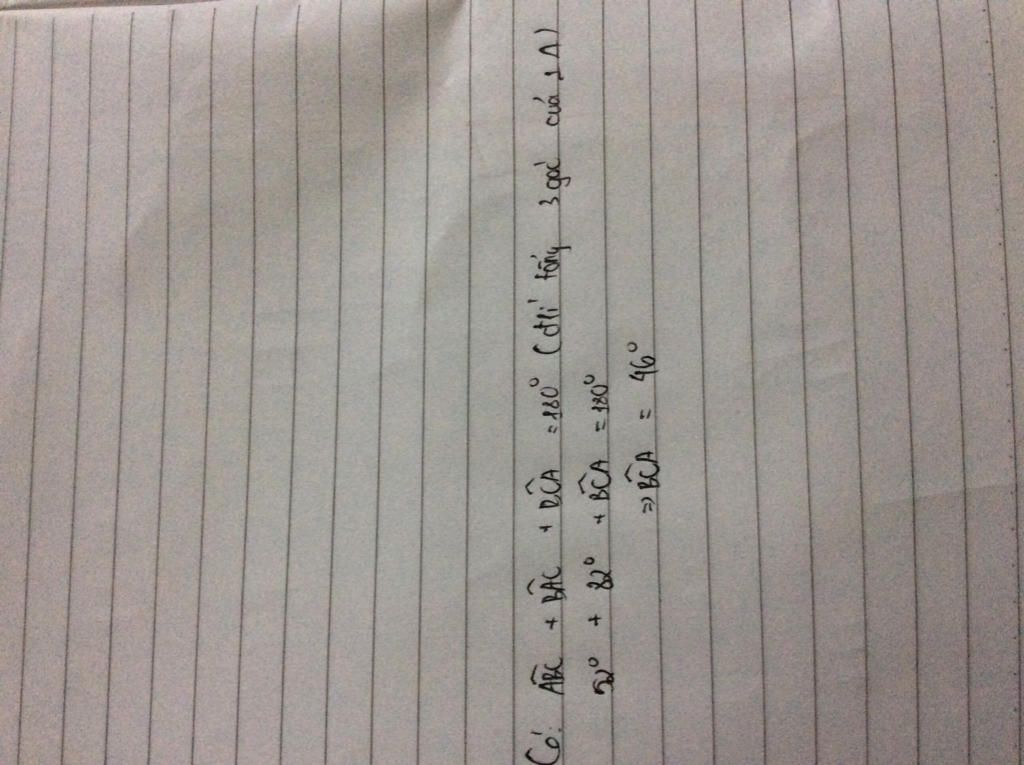 Có: A͡BC + B͡AC + B͡CA = 180° (đlí tổng 3 góc của 1 Δ)
52° + 82° + B͡CA = 180°
=> B͡CA = 46°